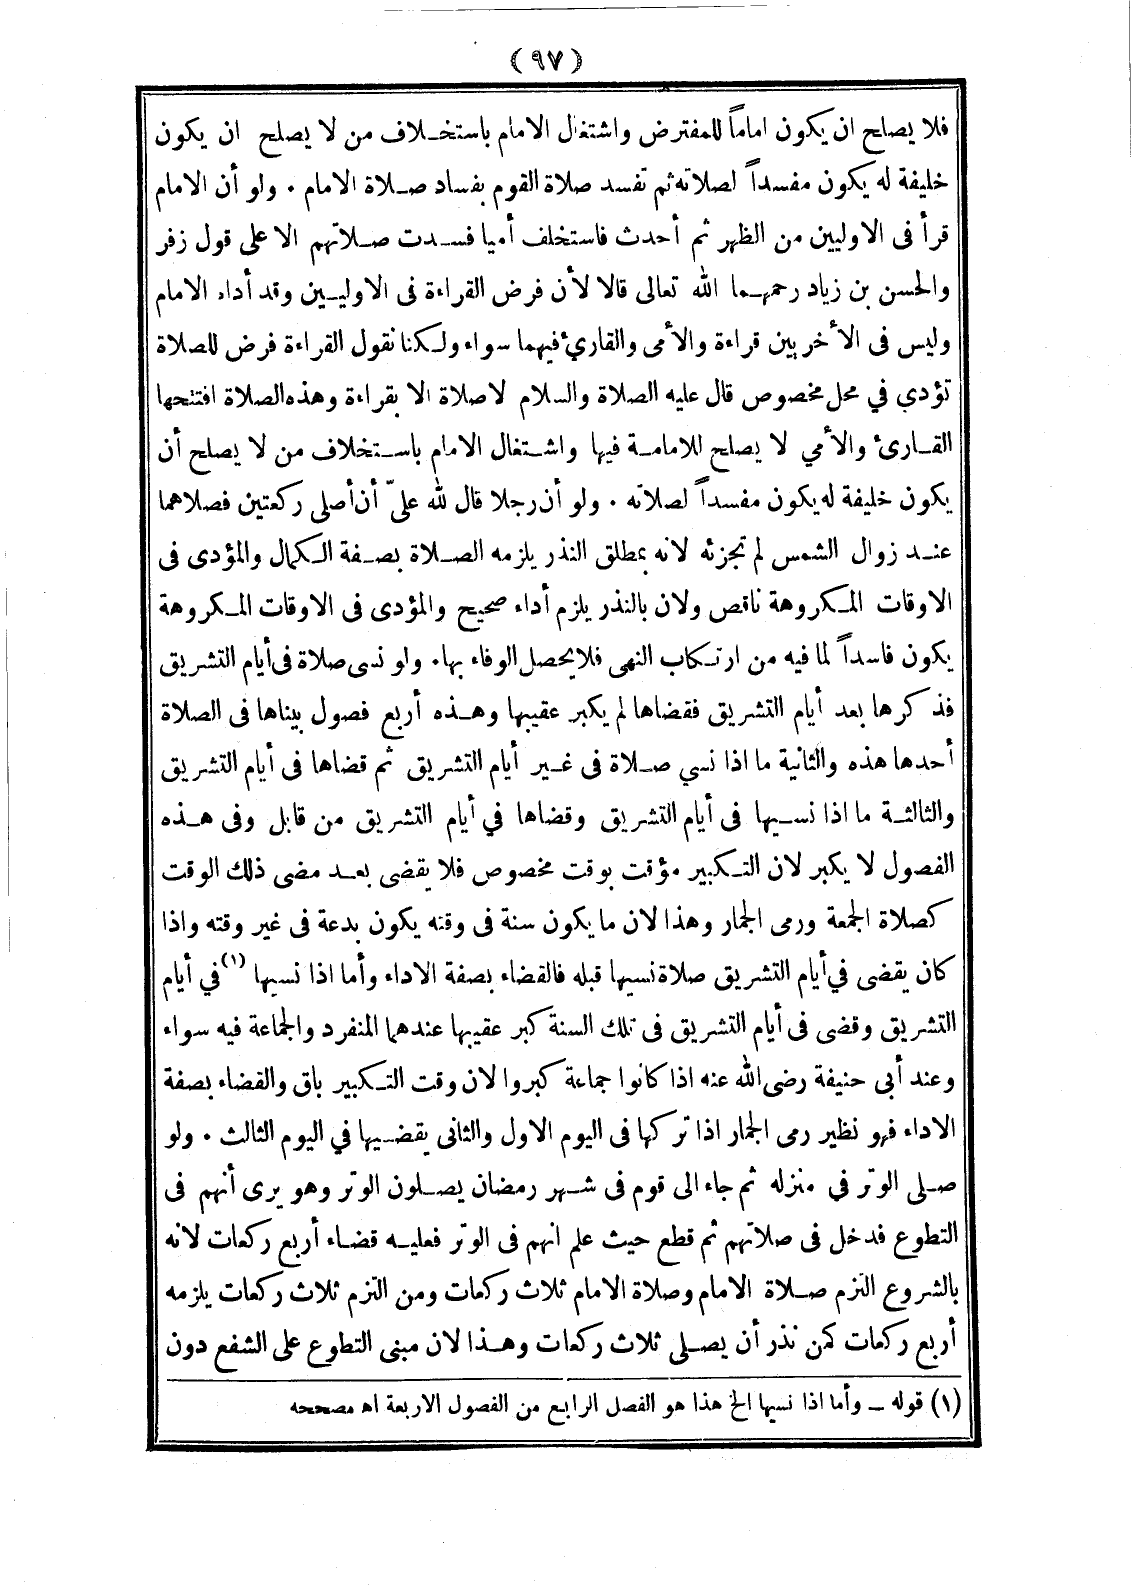 (٩٧)
فلا يصلح ان يكون اماماً للمفترض واشتغال الامام باستخلاف من لا يصلح ان يكون
خليفة له يكون مفسداً لصلاته ثم تفسد صلاة القوم بفساد صلاة الامام • ولو أن الامام
قرأ فى الاوليين من الظهر ثم أحدث فاستخلف أميا فسدت صلاتهم الا على قول زفر
والحسن بن زياد رحمهما الله تعالى قالا لأن فرض القراءة فى الاوليين وقد أداه الامام
وليس فى الأخريين قراءة والأمى والقارئ فيهما سواء ولكنا نقول القراءة فرض للصلاة
تؤدي في محل مخصوص قال عليه الصلاة والسلام لا صلاة الا بقراءة وهذه الصلاة افتتحها
القارئ والأمي لا يصلح للامامة فيها واشتغال الامام باستخلاف من لا يصلح أن
يكون خليفة له يكون مفسداً لصلاته • ولو أن رجلا قال لله علىّ أن أصلى ركعتين فصلاهما
عند زوال الشمس لم تجزئه لانه بمطلق النذر يلزمه الصلاة بصفة الكمال والمؤدى فى
الاوقات المكروهة ناقص ولان بالنذر يلزم أداء صحيح والمؤدى فى الاوقات المكروهة
يكون فاسداً لما فيه من ارتكاب النهى فلا يحصل الوفاء بها • ولو نسى صلاة فى أيام التشريق
فذكرها بعد أيام التشريق فقضاها لم يكبر عقيبها وهذه أربع فصول بيناها فى الصلاة
أحدها هذه والثانية ما اذا نسي صلاة فى غير أيام التشريق ثم قضاها فى أيام التشريق
والثالثة ما اذا نسيها فى أيام التشريق وقضاها في أيام التشريق من قابل وفى هذه
الفصول لا يكبر لان التكبير مؤقت بوقت مخصوص فلا يقضى بعد مضى ذلك الوقت
كصلاة الجمعة ورمى الجمار وهذا لان ما يكون سنة فى وقته يكون بدعة فى غير وقته واذا
كان يقضى في أيام التشريق صلاة نسيها قبله فالقضاء بصفة الاداء وأما اذا نسيها (١) في أيام
التشريق وقضى فى أيام التشريق فى تلك السنة كبر عقيبها عندهما المنفرد والجماعة فيه سواء
وعند أبى حنيفة رضى الله عنه اذا كانوا جماعة كبروا لان وقت التكبير باق والقضاء بصفة
الاداء فهو نظير رمى الجمار اذا تركها فى اليوم الاول والثانى يقضيها في اليوم الثالث • ولو
صلى الوتر في منزله ثم جاء الى قوم فى شهر رمضان يصلون الوتر وهو يرى أنهم فى
التطوع فدخل فى صلاتهم ثم قطع حيث علم انهم فى الوتر فعليه قضاء أربع ركعات لانه
بالشروع التزم صلاة الامام وصلاة الامام ثلاث ركعات ومن التزم ثلاث ركعات يلزمه
أربع ركعات كمن نذر أن يصلى ثلاث ركعات وهذا لان مبنى التطوع على الشفع دون
(١) قوله – وأما اذا نسيها الخ هذا هو الفصل الرابع من الفصول الاربعة اه مصححه